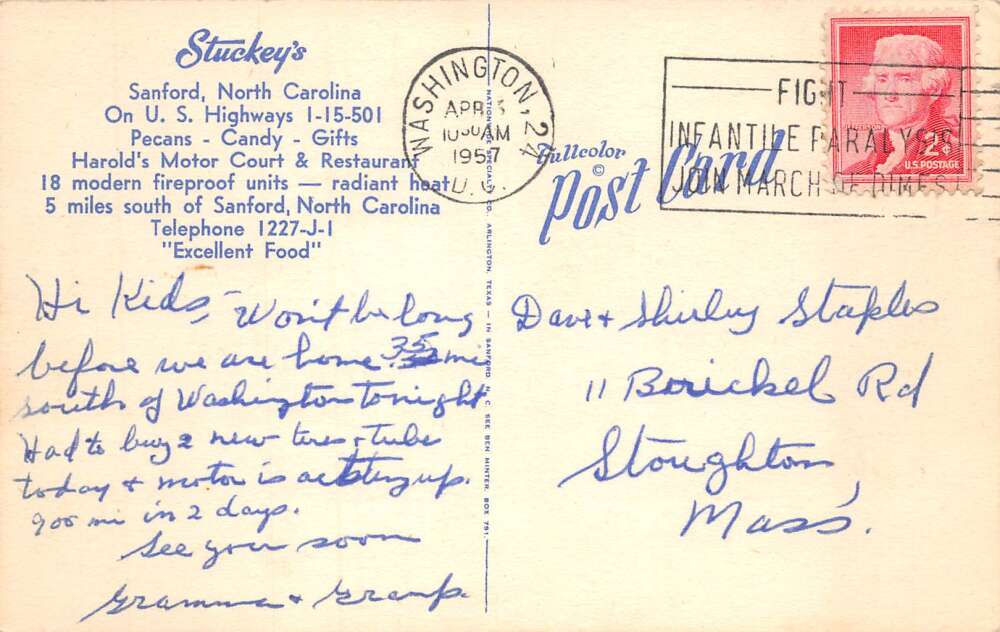 Stuckey's
Sanford, North Carolina
On U. S. Highways 1-15-501
Pecans - Candy - Gifts
Harold's Motor Court & Restaurant
18 modern fireproof units — radiant heat
5 miles south of Sanford, North Carolina
Telephone 1227-J-1
"Excellent Food"
Hi Kids, - Won't be long
before we are home. 35 mi
south of Washington tonight
Had to buy 2 new tires & tube
today & motor is acting up.
900 mi in 2 days.
See you soon
Gramma & Gramp.
CO., ARLINGTON, TEXAS — IN SANFORD, N. C. SEE BEN HINTER, BOX 751.
WASHINGTON, 24
APR
10 AM
1957
Fullcolor
©
Post Card
FIGHT
INFANTILE PARALYSIS
JOIN MARCH OF DIMES
2¢
U.S. POSTAGE
Dave & Shirley Staples
11 Rd
Stoughton
Mass.